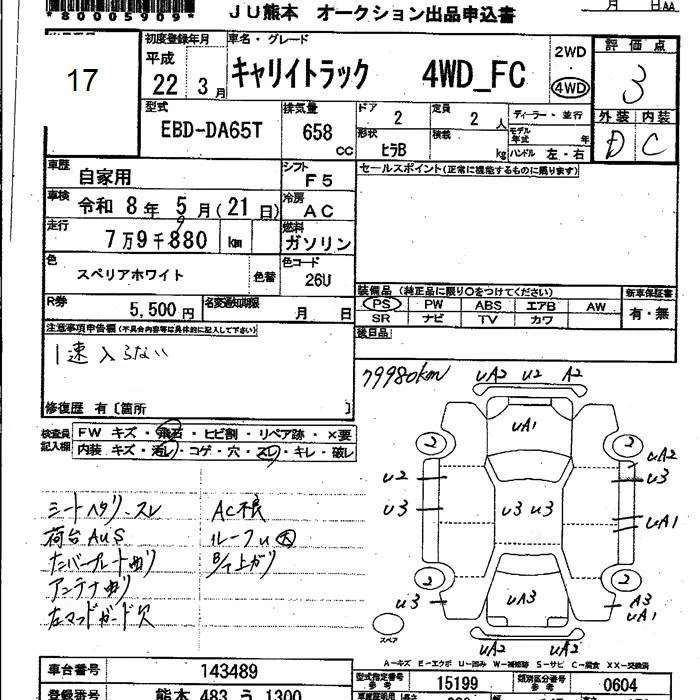 *80005909*
JU熊本 オークション出品申込書
月 日AA
17
初度登録年月
平成
22 3月
車名・グレード
キャリイトラック 4WD_FC
2WD
4WD
評価点
3
外装 内装
D C
型式
EBD-DA65T
排気量
658
CC
ドア
2
定員
2 人
ディーラー・並行
形状
ヒラB
積載
kg
モデル年式 年
ハンドル 左・右
車歴
自家用
シフト
F5
セールスポイント(正常に機能するものに限ります)
車検
令和 8年 5月(21日)
冷房
AC
走行
7万9千880 km
9
燃料
ガソリン
色
スペリアホワイト
色替
色コード
26U
装備品(純正品に限り○をつけてください)
PS PW ABS エアB AW
SR ナビ TV カワ
新車保証書
有・無
R券
5,500円
名変通知期限
月 日
後日品
注意事項申告欄(不具合内容等は具体的に記入して下さい)
1速入らない
修復歴 有〔箇所 〕
79980km
検査員記入欄
FW キズ・飛石・ヒビ割・リペア跡・×要
内装 キズ・汚レ・コゲ・穴・スレ・キレ・破レ
シートヘタリ、スレ
荷台AUS
ナンバープレート曲り
アンテナ曲り
左マッドガード欠
AC不良
ルーフU大
B/下上ガリ
UA2 U2 A2
UA1
2
2
U2
U3
U3 U3
UA2
U3
UA1
2
2
U3
UA3
A3
UA1
UA2 UA2
スペア
A-キズ E-エクボ U-凹み W-補修跡 S-サビ C-腐食 XX-交換済
車台番号
143489
型式指定番号
参考
15199
類別区分番号
参考
0604
登録番号
熊本 483 う 1300